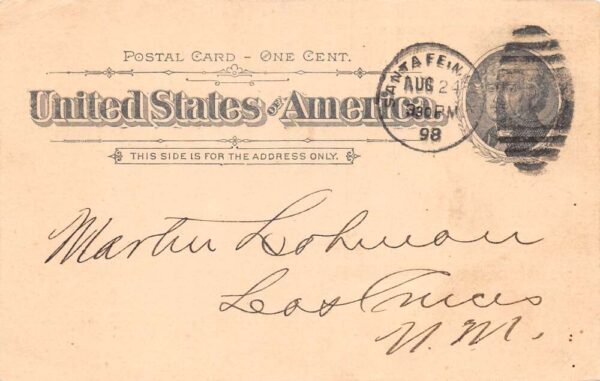 POSTAL CARD - ONE CENT.
United States of America
THIS SIDE IS FOR THE ADDRESS ONLY.
SANTA FE, N.
AUG 24
330 PM
98
Martin Lohman
Las Cruces
N.M.